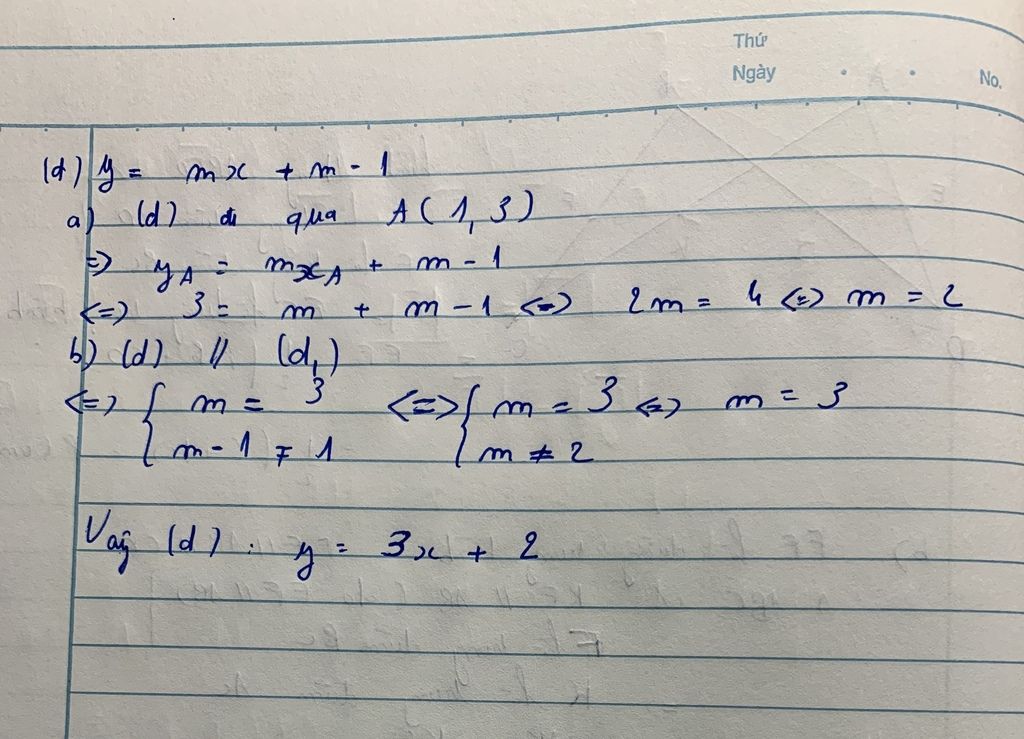 Thứ
Ngày . . No.
(d) y = mx + m - 1
a) (d) đi qua A(1, 3)
=> yA = mxA + m - 1
<=> 3 = m + m - 1 <=> 2m = 4 <=> m = 2
b) (d) // (d1)
<=> { m = 3 <=> { m = 3 <=> m = 3
m - 1 ≠ 1 m ≠ 2
Vậy (d) : y = 3x + 2